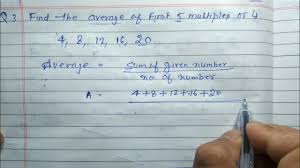 Q.3 Find the average of first 5 multiples of 4
4, 8, 12, 16, 20
Average = sum of given number
no of number
A = 4+8+12+16+20